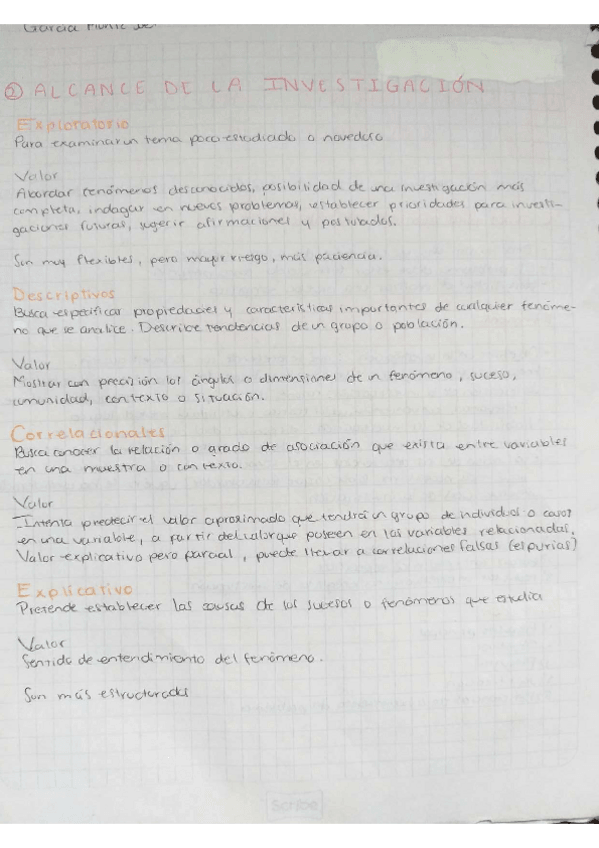 García
② ALCANCE DE LA INVESTIGACIÓN
Exploratorio
Para examinar un tema poco estudiado o novedoso
Valor
Abordar fenómenos desconocidos, posibilidad de una investigación más
completa, indagar en nuevos problemas, establecer prioridades para investi-
gaciones futuras, sugerir afirmaciones y postulados.
Son muy flexibles, pero mayor riesgo, más paciencia.
Descriptivos
Busca especificar propiedades y características importantes de cualquier fenóme-
no que se analice. Describe tendencias de un grupo o población.
Valor
Mostrar con precisión los ángulos o dimensiones de un fenómeno, suceso,
comunidad, contexto o situación.
Correlacionales
Busca conocer la relación o grado de asociación que exista entre variables
en una muestra o contexto.
Valor
-Intenta predecir el valor aproximado que tendrá un grupo de individuos o casos
en una variable, a partir del valor que poseen en las variables relacionadas.
Valor explicativo pero parcial, puede llevar a correlaciones falsas (espurias)
Explicativo
Pretende establecer las causas de los sucesos o fenómenos que estudia
Valor
Sentido de entendimiento del fenómeno.
Son más estructurados
Scribe